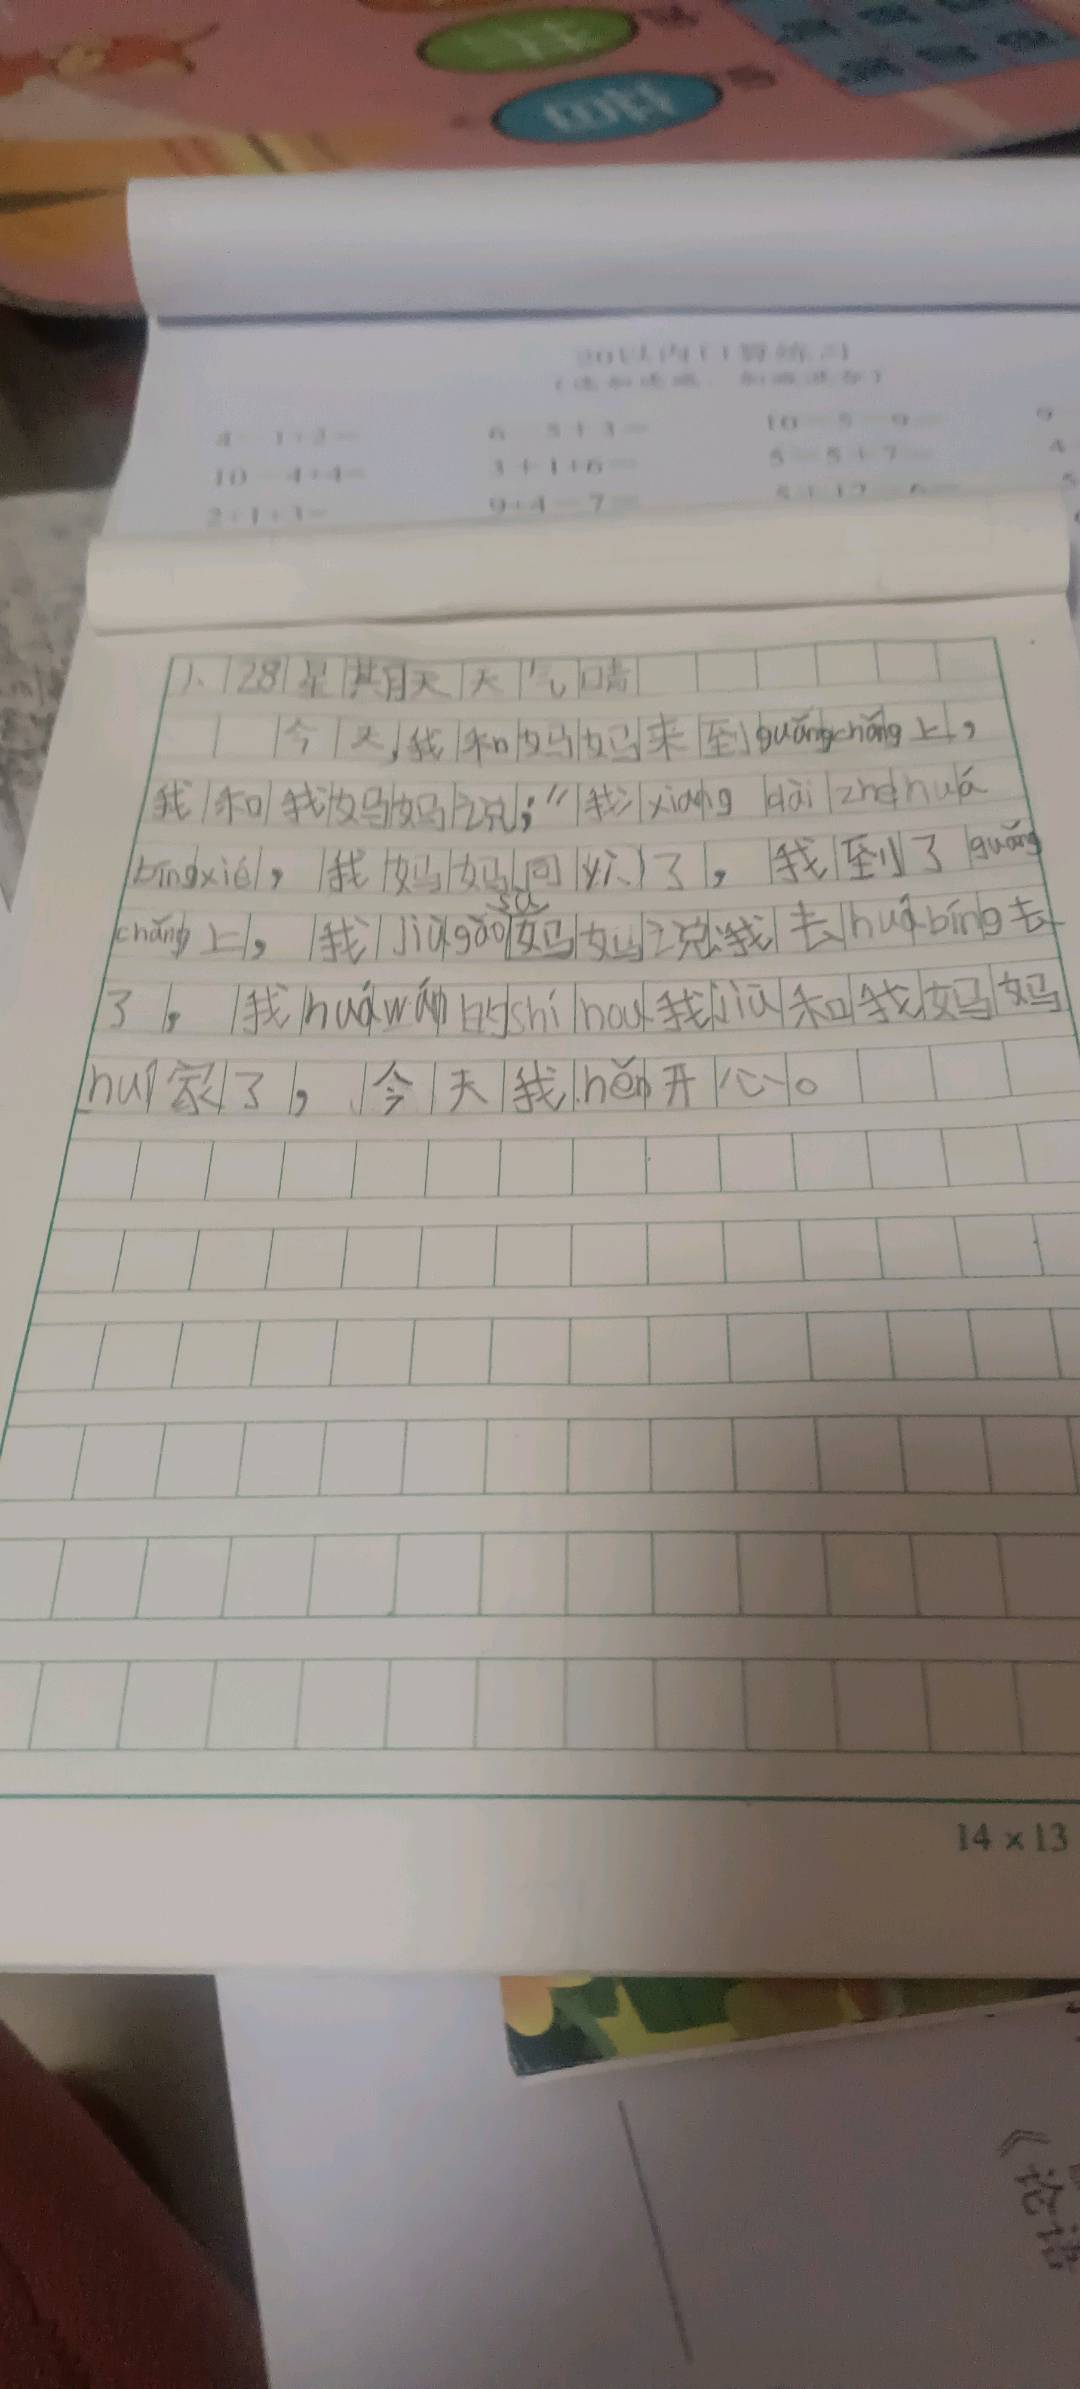 20以内口算练习
4-1+2=
6-3+3=
10-5-0=
10-4+4=
3+1+6=
5-5+7=
2+1+3=
9+4-7=
1、28星期天天气晴
今天,我和妈妈来到guǎngchǎng上,
我和我妈妈说;"我xiang dài zhe huá
bīngxié,我妈妈同以了,我到了guǎng
chǎng上,我jiùgào sù妈妈说:我去huábīng去
了,我huáwán的shí hou我jiù和我妈妈
huí家了,今天我hěn开心。
14×13
《论语